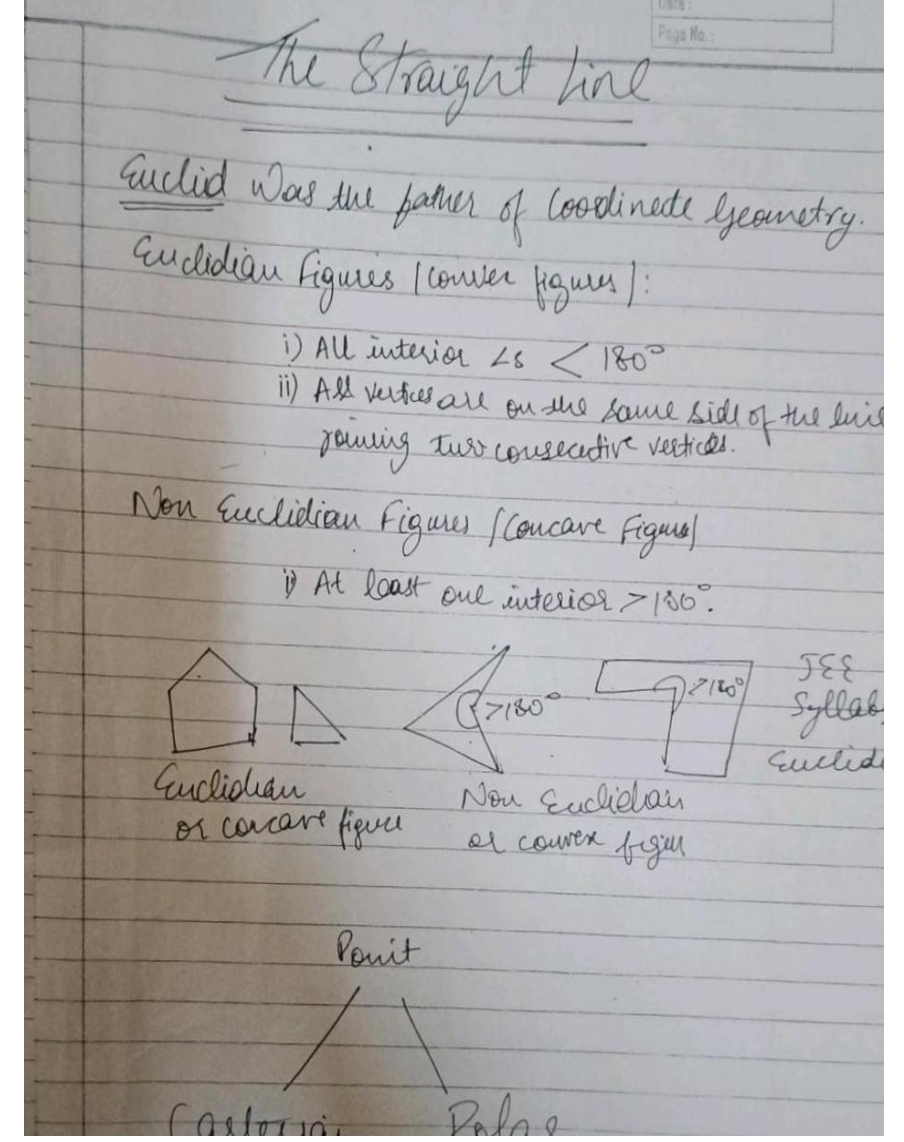 Date :
Page No. :
The Straight Line
Euclid Was the father of Coodinate Geometry.
Euclidian Figures / Convex figures / :
i) All interior ∠s < 180°
ii) All vertices are on the same side of the line
joining two consecutive vertices.
Non Euclidian Figures / Concave Figure /
i) At least one interior > 180°.
>180° >180° JEE
Syllab
Euclid
Euclidian
or concave figure
Non Euclidian
or convex figure
Point
Cartesian Polar